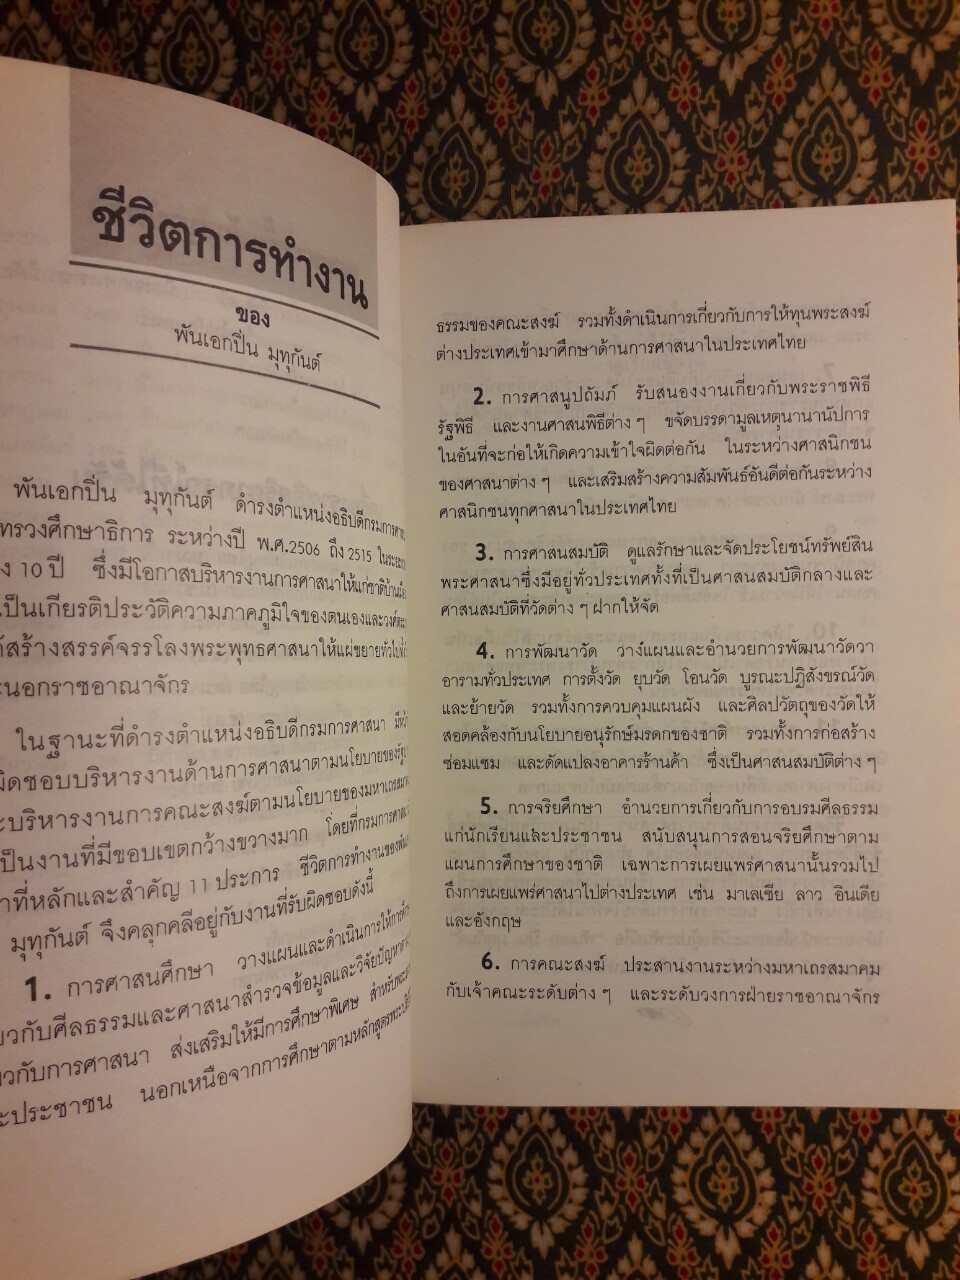 ชีวิตการทำงาน
ของ
พันเอกปิ่น มุทุกันต์
พันเอกปิ่น มุทุกันต์ ดำรงตำแหน่งอธิบดีกรมการศาสนา
ทรวงศึกษาธิการ ระหว่างปี พ.ศ.2506 ถึง 2515 ในระยะ
10 ปี ซึ่งมีโอกาสบริหารงานการศาสนาให้แก่ชาติบ้านเมือง
เป็นเกียรติประวัติความภาคภูมิใจของตนเองและวงศ์
สร้างสรรค์จรรโลงพระพุทธศาสนาให้แผ่ขยายทั่วไปทั้ง
นอกราชอาณาจักร
ในฐานะที่ดำรงตำแหน่งอธิบดีกรมการศาสนา
ผิดชอบบริหารงานด้านการศาสนาตามนโยบายของ
บริหารงานการคณะสงฆ์ตามนโยบายของมหาเถรสมาคม
เป็นงานที่มีขอบเขตกว้างขวางมาก โดยที่กรมการศาสนา
ที่หลักและสำคัญ 11 ประการ ชีวิตการทำงานของ
มุทุกันต์ จึงคลุกคลีอยู่กับงานที่รับผิดชอบดังนี้
1. การศาสนศึกษา วางแผนและดำเนินการให้การศึกษา
กับศีลธรรมและศาสนาสำรวจข้อมูลและวิจัยปัญหา
กับการศาสนา ส่งเสริมให้มีการศึกษาพิเศษ สำหรับ
ประชาชน นอกเหนือจากการศึกษาตามหลักสูตร
ธรรมของคณะสงฆ์ รวมทั้งดำเนินการเกี่ยวกับการให้ทุนพระสงฆ์
ต่างประเทศเข้ามาศึกษาด้านการศาสนาในประเทศไทย
2. การศาสนูปถัมภ์ รับสนองงานเกี่ยวกับพระราชพิธี
รัฐพิธี และงานศาสนพิธีต่าง ๆ ขจัดบรรดามูลเหตุนานานัปการ
ในอันที่จะก่อให้เกิดความเข้าใจผิดต่อกัน ในระหว่างศาสนิกชน
ของศาสนาต่าง ๆ และเสริมสร้างความสัมพันธ์อันดีต่อกันระหว่าง
ศาสนิกชนทุกศาสนาในประเทศไทย
3. การศาสนสมบัติ ดูแลรักษาและจัดประโยชน์ทรัพย์สิน
พระศาสนาซึ่งมีอยู่ทั่วประเทศทั้งที่เป็นศาสนสมบัติกลางและ
ศาสนสมบัติที่วัดต่าง ๆ ฝากให้จัด
4. การพัฒนาวัด วางแผนและอำนวยการพัฒนาวัดวา
อารามทั่วประเทศ การตั้งวัด ยุบวัด โอนวัด บูรณะปฏิสังขรณ์วัด
และย้ายวัด รวมทั้งการควบคุมแผนผัง และศิลปวัตถุของวัดให้
สอดคล้องกับนโยบายอนุรักษ์มรดกของชาติ รวมทั้งการก่อสร้าง
ซ่อมแซม และดัดแปลงอาคารร้านค้า ซึ่งเป็นศาสนสมบัติต่าง ๆ
5. การจริยศึกษา อำนวยการเกี่ยวกับการอบรมศีลธรรม
แก่นักเรียนและประชาชน สนับสนุนการสอนจริยศึกษาตาม
แผนการศึกษาของชาติ เฉพาะการเผยแพร่ศาสนานั้นรวมไป
ถึงการเผยแพร่ศาสนาไปต่างประเทศ เช่น มาเลเซีย ลาว อินเดีย
และอังกฤษ
6. การคณะสงฆ์ ประสานงานระหว่างมหาเถรสมาคม
กับเจ้าคณะระดับต่าง ๆ และระดับวงการฝ่ายราชอาณาจักร